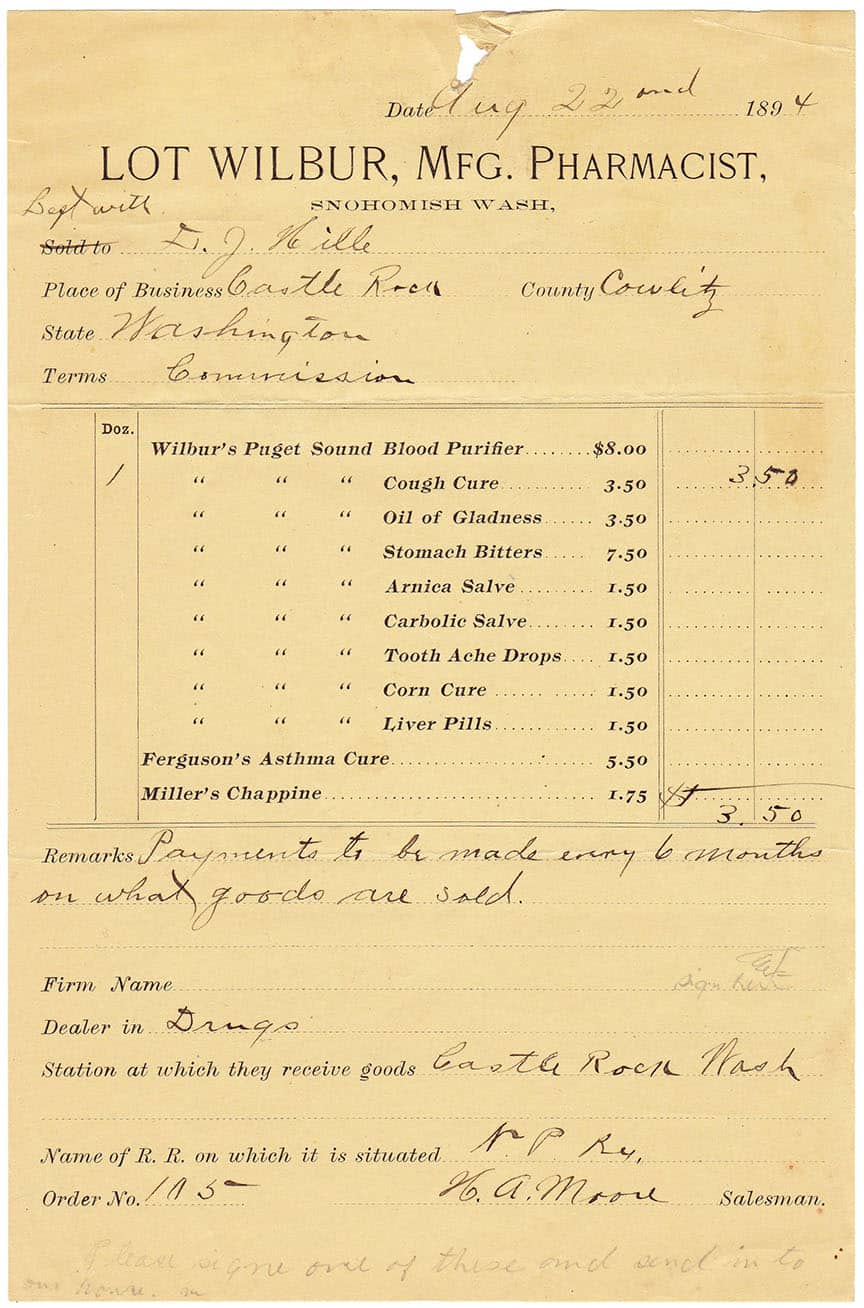 Date Aug 22 ond 1894
LOT WILBUR, MFG. PHARMACIST,
SNOHOMISH WASH,
with
Sold to J. Hille
Place of Business Castle Rock County Cowlitz
State Washington
Terms Commission
Doz.
Wilbur's Puget Sound Blood Purifier........$8.00
1 “ “ “ Cough Cure............ 3.50 3.50
“ “ “ Oil of Gladness...... 3.50
“ “ “ Stomach Bitters..... 7.50
“ “ “ Arnica Salve.......... 1.50
“ “ “ Carbolic Salve........ 1.50
“ “ “ Tooth Ache Drops.... 1.50
“ “ “ Corn Cure ............ 1.50
“ “ “ Liver Pills............ 1.50
Ferguson's Asthma Cure......................... 5.50
Miller's Chappine................................. 1.75
3.50
Remarks Payments to be made every 6 months
on what goods are sold.
Firm Name sign here
Dealer in Drugs
Station at which they receive goods Castle Rock Wash
Name of R. R. on which it is situated N. P. Ry.
Order No. 105 H. A. Moore Salesman.
Please signe one of these and send in to
our house.